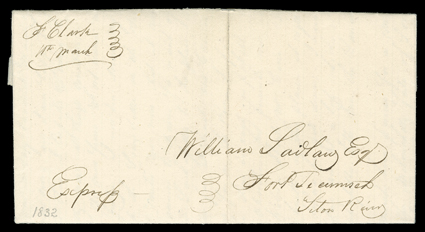 F Clark
11th March
William Laidlaw Esqr
Fort Tecumseh
Teton River
Express
1832